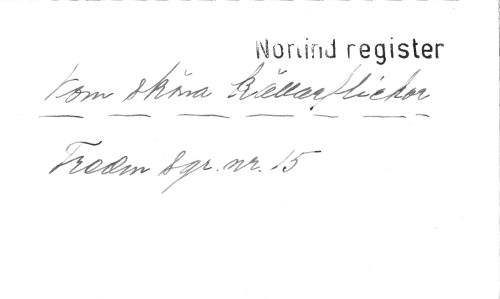 Norlind register
Kom sköna Källarflickor
Fredm Sgr. nr. 15